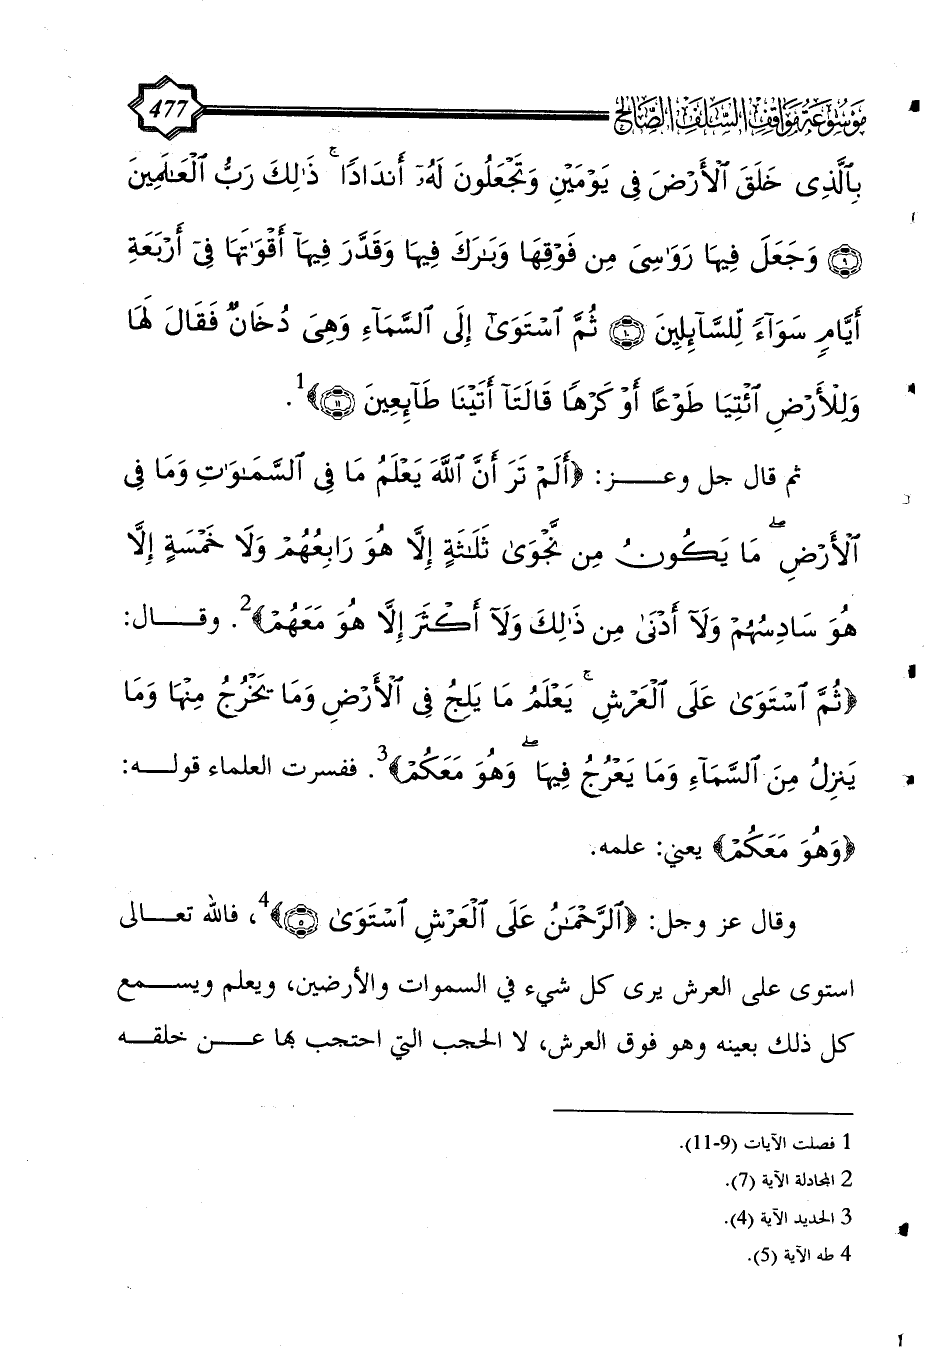 موسوعة مواقف السلف الصالح 477
بِٱلَّذِى خَلَقَ ٱلْأَرْضَ فِى يَوْمَيْنِ وَتَجْعَلُونَ لَهُۥٓ أَندَادًا ۚ ذَٰلِكَ رَبُّ ٱلْعَٰلَمِينَ
۝٩ وَجَعَلَ فِيهَا رَوَٰسِىَ مِن فَوْقِهَا وَبَٰرَكَ فِيهَا وَقَدَّرَ فِيهَآ أَقْوَٰتَهَا فِىٓ أَرْبَعَةِ
أَيَّامٍ سَوَآءً لِّلسَّآئِلِينَ ۝١٠ ثُمَّ ٱسْتَوَىٰٓ إِلَى ٱلسَّمَآءِ وَهِىَ دُخَانٌ فَقَالَ لَهَا
وَلِلْأَرْضِ ٱئْتِيَا طَوْعًا أَوْ كَرْهًا قَالَتَآ أَتَيْنَا طَآئِعِينَ ۝١١﴾1.
ثم قال جل وعــز: ﴿أَلَمْ تَرَ أَنَّ ٱللَّهَ يَعْلَمُ مَا فِى ٱلسَّمَٰوَٰتِ وَمَا فِى
ٱلْأَرْضِ ۖ مَا يَكُونُ مِن نَّجْوَىٰ ثَلَٰثَةٍ إِلَّا هُوَ رَابِعُهُمْ وَلَا خَمْسَةٍ إِلَّا
هُوَ سَادِسُهُمْ وَلَآ أَدْنَىٰ مِن ذَٰلِكَ وَلَآ أَكْثَرَ إِلَّا هُوَ مَعَهُمْ﴾2. وقــال:
﴿ثُمَّ ٱسْتَوَىٰ عَلَى ٱلْعَرْشِ ۚ يَعْلَمُ مَا يَلِجُ فِى ٱلْأَرْضِ وَمَا يَخْرُجُ مِنْهَا وَمَا
يَنزِلُ مِنَ ٱلسَّمَآءِ وَمَا يَعْرُجُ فِيهَا ۖ وَهُوَ مَعَكُمْ﴾3. ففسرت العلماء قولــه:
﴿وَهُوَ مَعَكُمْ﴾ يعني: علمه.
وقال عز وجل: ﴿ٱلرَّحْمَٰنُ عَلَى ٱلْعَرْشِ ٱسْتَوَىٰ ۝٥﴾4، فالله تعــالى
استوى على العرش يرى كل شيء في السموات والأرضين، ويعلم ويســمع
كل ذلك بعينه وهو فوق العرش، لا الحجب التي احتجب بها عــن خلقــه
1 فصلت الآيات (9-11).
2 المجادلة الآية (7).
3 الحديد الآية (4).
4 طه الآية (5).